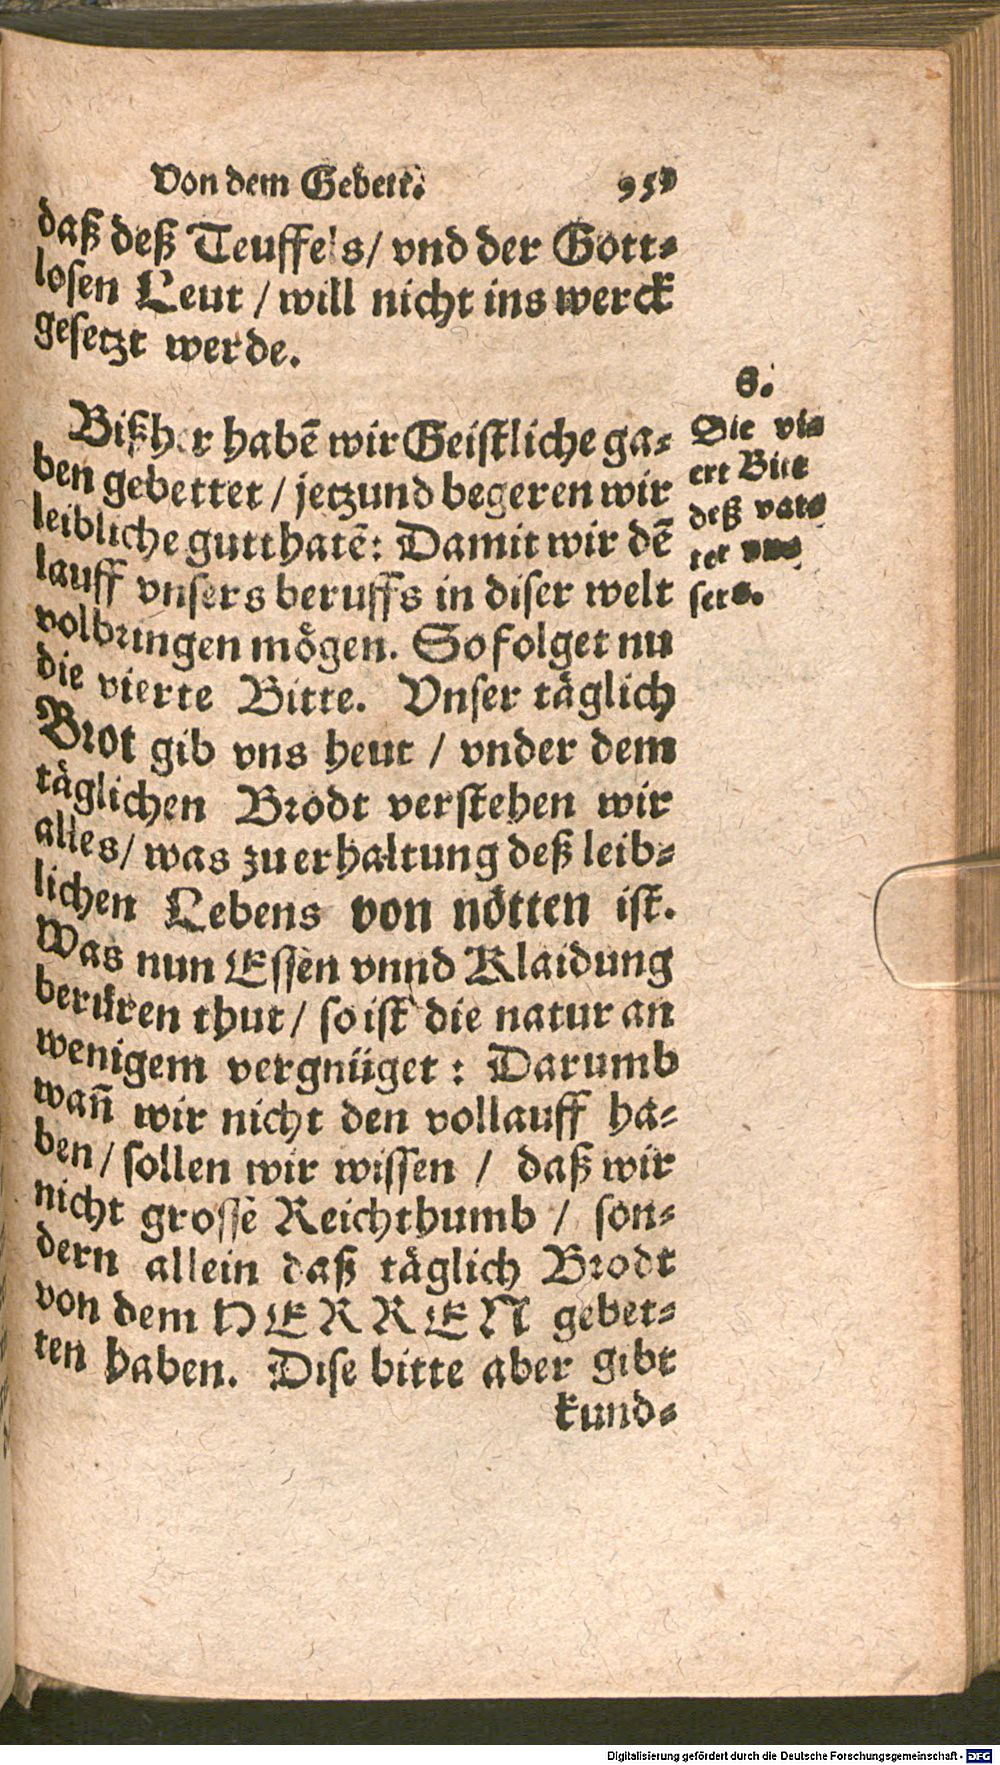 Von dem Gebett.
daß deß Teuffels/ vnd der Gott⸗
losen Leut / will nicht ins werck
gesetzt werde.
Bißher habē wir Geistliche ga⸗
ben gebettet / jetzund begeren wir
leibliche gutthatē: Damit wir dē
lauff vnsers beruffs in diser welt
volbringen mögen. So folget nu
die vierte Bitte. Vnser täglich
Brot gib vns heut / vnder dem
täglichen Brodt verstehen wir
alles/ was zu erhaltung deß leib⸗
lichen Lebens von nötten ist.
Was nun Essen vnnd Klaidung
berüren thut/ so ist die natur an
wenigem vergnüget : Darumb
wañ wir nicht den vollauff ha⸗
ben/ sollen wir wissen / daß wir
nicht grosse Reichthumb / son⸗
dern allein daß täglich Brodt
von dem HERREN gebet⸗
ten haben. Dise bitte aber gibt
kund⸗
8.
Die vi⸗
ert Bitt
deß vat⸗
ter vn⸗
sers.
Digitalisierung gefördert durch die Deutsche Forschungsgemeinschaft - DFG